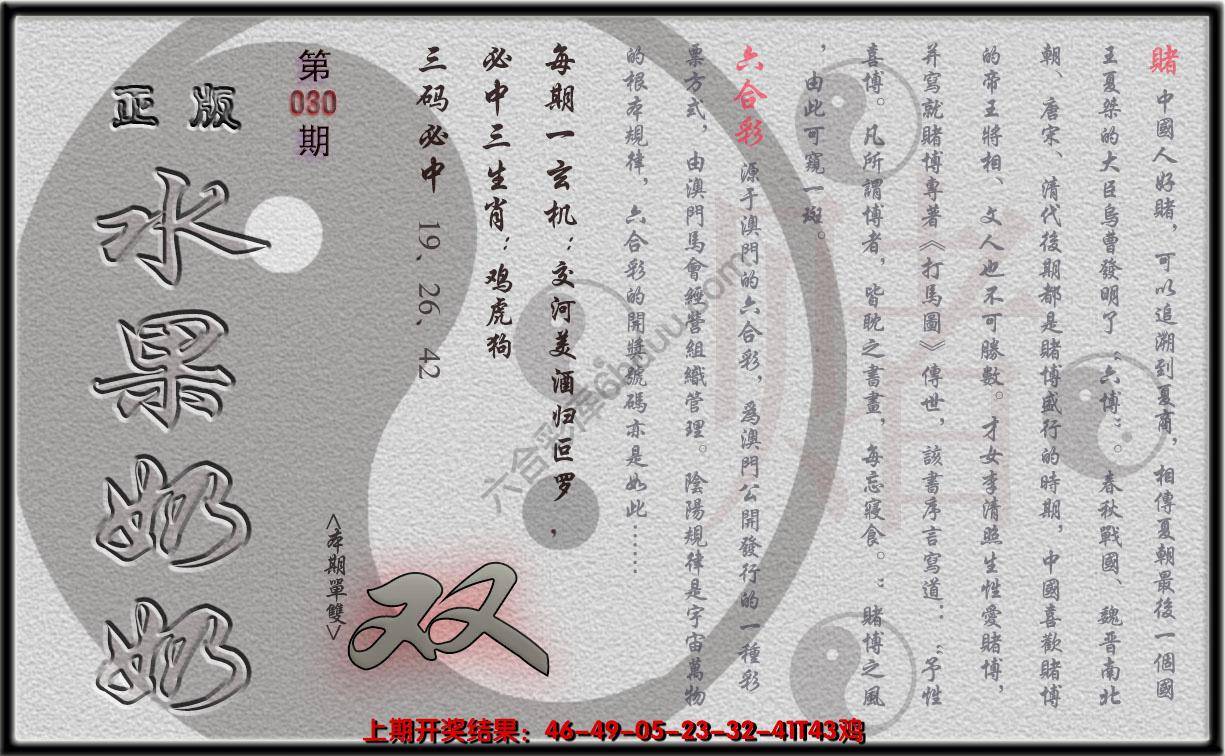 賭 中國人好賭，可以追溯到夏商，相傳夏朝最後一個國
王夏桀的大臣烏曹發明了“六博”。春秋戰國、魏晋南北
朝、唐宋、清代後期都是賭博盛行的時期，中國喜歡賭博
的帝王將相、文人也不可勝數。才女李清照生性愛賭博，
并寫就賭博專著《打馬圖》傳世，該書序言寫道：“予性
喜博。凡所謂博者，皆耽之書畫，每忘寢食。：賭博之風
，由此可窺一斑。
六合彩 源于澳門的六合彩，爲澳門公開發行的一種彩
票方式，由澳門馬會經營組織管理。陰陽規律是宇宙萬物
的根本規律，六合彩的開獎號碼亦是如此……
每期一玄机：交河美酒归叵罗，
必中三生肖：鸡虎狗
三码必中 19、26、42
<本期單雙>
双
第
030
期
正版
水果奶奶
賭
六合彩库6hduu.com
上期开奖结果：46-49-05-23-32-41T43鸡